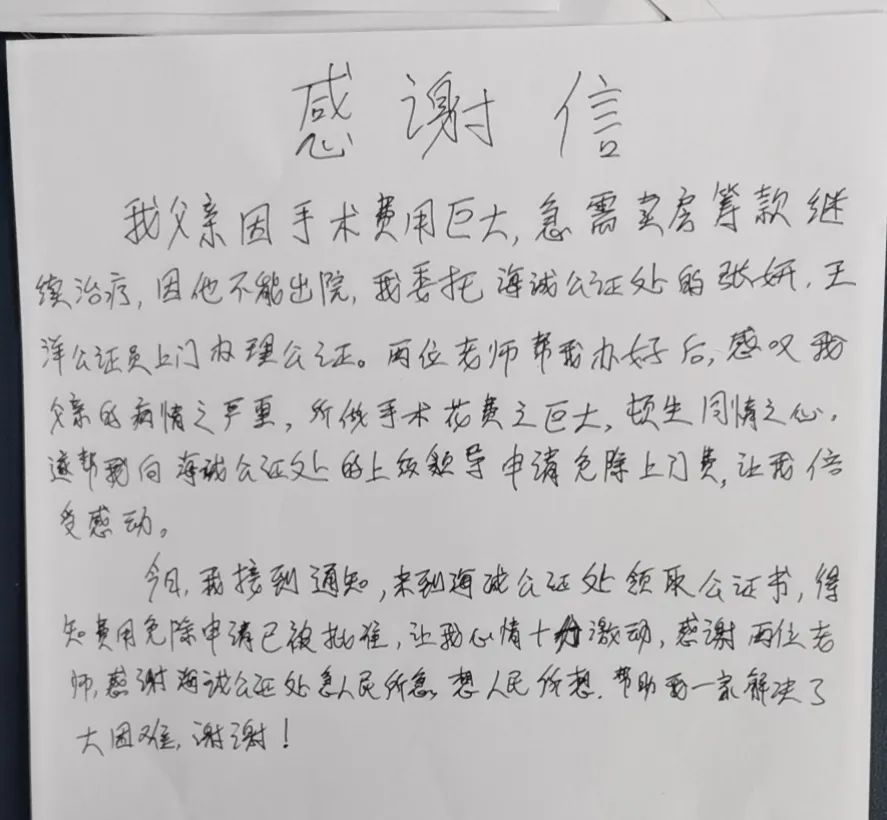 感谢信
我父亲因手术费用巨大,急需卖房筹款继
续治疗,因他不能出院,我委托海诚公证处的张妍、王
洋公证员上门办理公证。两位老师帮我办好后,感叹我
父亲的病情之严重,所做手术花费之巨大,顿生同情之心,
遂帮我向海诚公证处的上级领导申请免除上门费,让我倍
受感动。
今日,我接到通知,来到海诚公证处领取公证书,得
知费用免除申请已被批准,让我心情十分激动,感谢两位老
师,感谢海诚公证处急人民所急、想人民所想,帮助我一家解决了
大困难,谢谢!